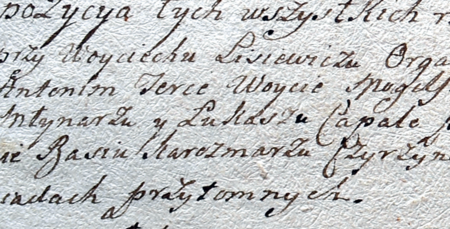 pożycya tych wszystkich
przy Woyciechu Lisiewiczu Orga
Antonim Terce Woycie
Młynarzu y Łukaszu Capale
Basiu Karczmarzu Czyrzyn
sadach przytomnych.